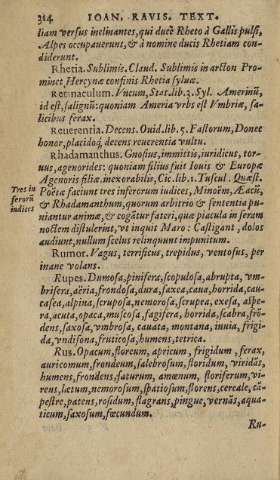 314 IOAN. RAVIS. TEXT.
liam versus inclinantes, qui duce Rheto à Gallis pulsi,
Alpes occupauerunt, & à nomine ducis Rhetiam con-
diderunt.
Rhetia. Sublimis. Claud. Sublimis in arcton Pro-
minet Hercynæ confinis Rhetia syluæ.
Retinaculum. Vncum, Stat. lib. 3. Syl. Amerinũ,
id est, salignũ: quoniam Ameria vrbs est Vmbriæ, sa-
licibus ferax.
Reuerentia. Decens. Ouid. lib. 5. Fastorum, Donec
honor, placidoq́; decens reuerentia vultu.
Rhadamanthus. Gnosius, immitis, iuridicus, tor-
uus, agenorides: quoniam filius fuit Iouis & Europæ
Agenoris filiæ. inexorabilis, Cic. lib. 1. Tuscul. Quæst.
Tres in
ferorũ
iudices
Poëtæ faciunt tres inferorum iudices, Minoëm, Æacũ,
& Rhadamanthum, quorum arbitrio & sententia pu-
niantur animæ, & cogãtur fateri, quæ piacula in seram
noctem distulerint, vt inquit Maro: Castigant, dolos
audiunt, nullum scelus relinquunt impunitum.
Rumor. Vagus, terrificus, trepidus, ventosus, per
inane volans.
Rupes. Dumosa, pinifera, scopulosa, abrupta, vm-
brifera, aëria, frondosa, dura, saxea, caua, horrida, cau-
casea, alpina, scruposa, nemorosa, scrupea, exesa, aspe-
ra, acuta, opaca, muscosa, fagifera, horrida, scabra, frõ-
dens, saxosa, vmbrosa, cauata, montana, inuia, frigi-
da, vndisona, fruticosa, humens, tetrica.
Rus. Opacum, floreum, apricum, frigidum, ferax,
auricomum, frondeum, salebrosum, floridum, viridãs,
humens, frondens, saturum, amœnum, floriferum, vi-
rens, lætum, nemorosum, spatiosum, florens, cereale, cã-
pestre, patens, rosidum, flagrans, pingue, vernãs, aqua-
ticum, saxosum, fœcundum.
Ru-